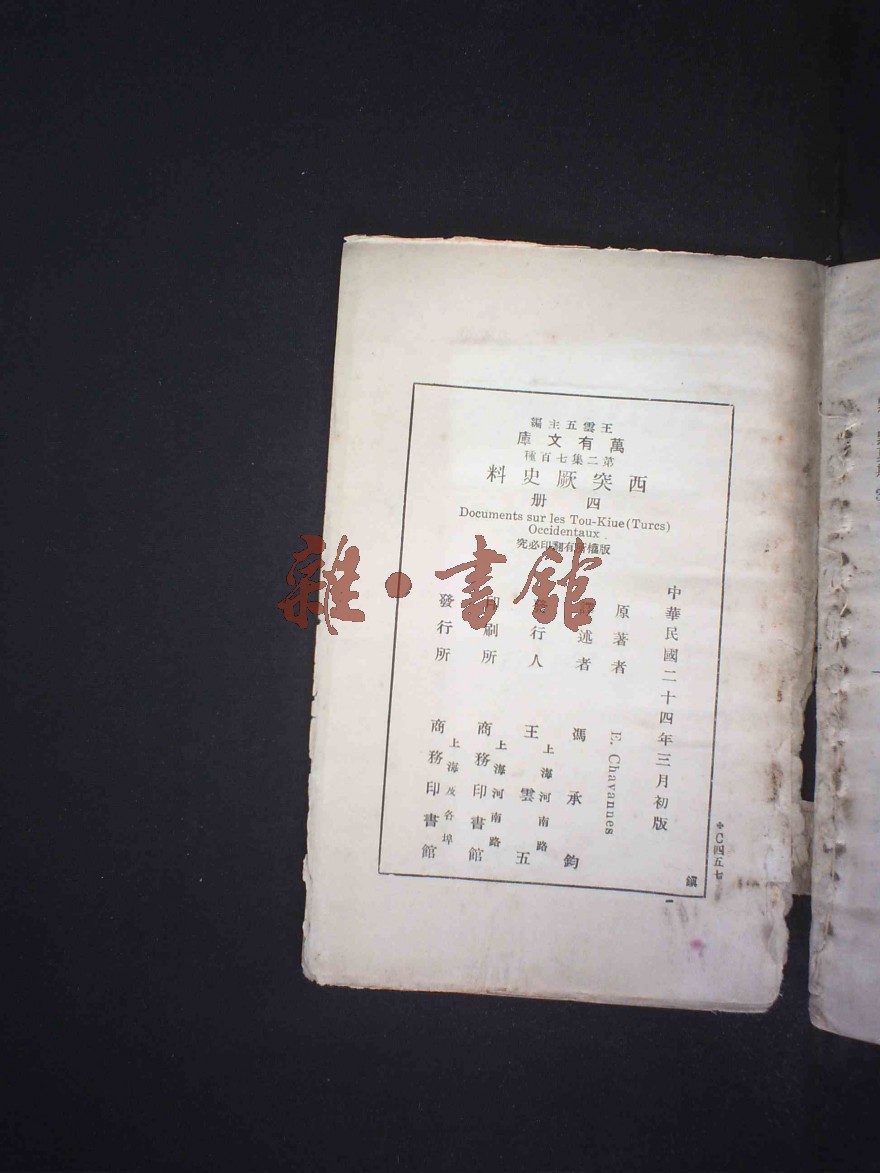 王雲五主編
萬有文庫
第二集七百種
西突厥史料
四册
Documents sur les Tou-Kiue (Turcs)
Occidentaux
版權所有翻印必究
中華民國二十四年三月初版
原著者 E. Chavannes
述者 馮承鈞
發行人 王雲五
上海河南路
印刷所 商務印書館
上海河南路
發行所 商務印書館
上海及各埠
＊C四五七
鎭
雜·書館